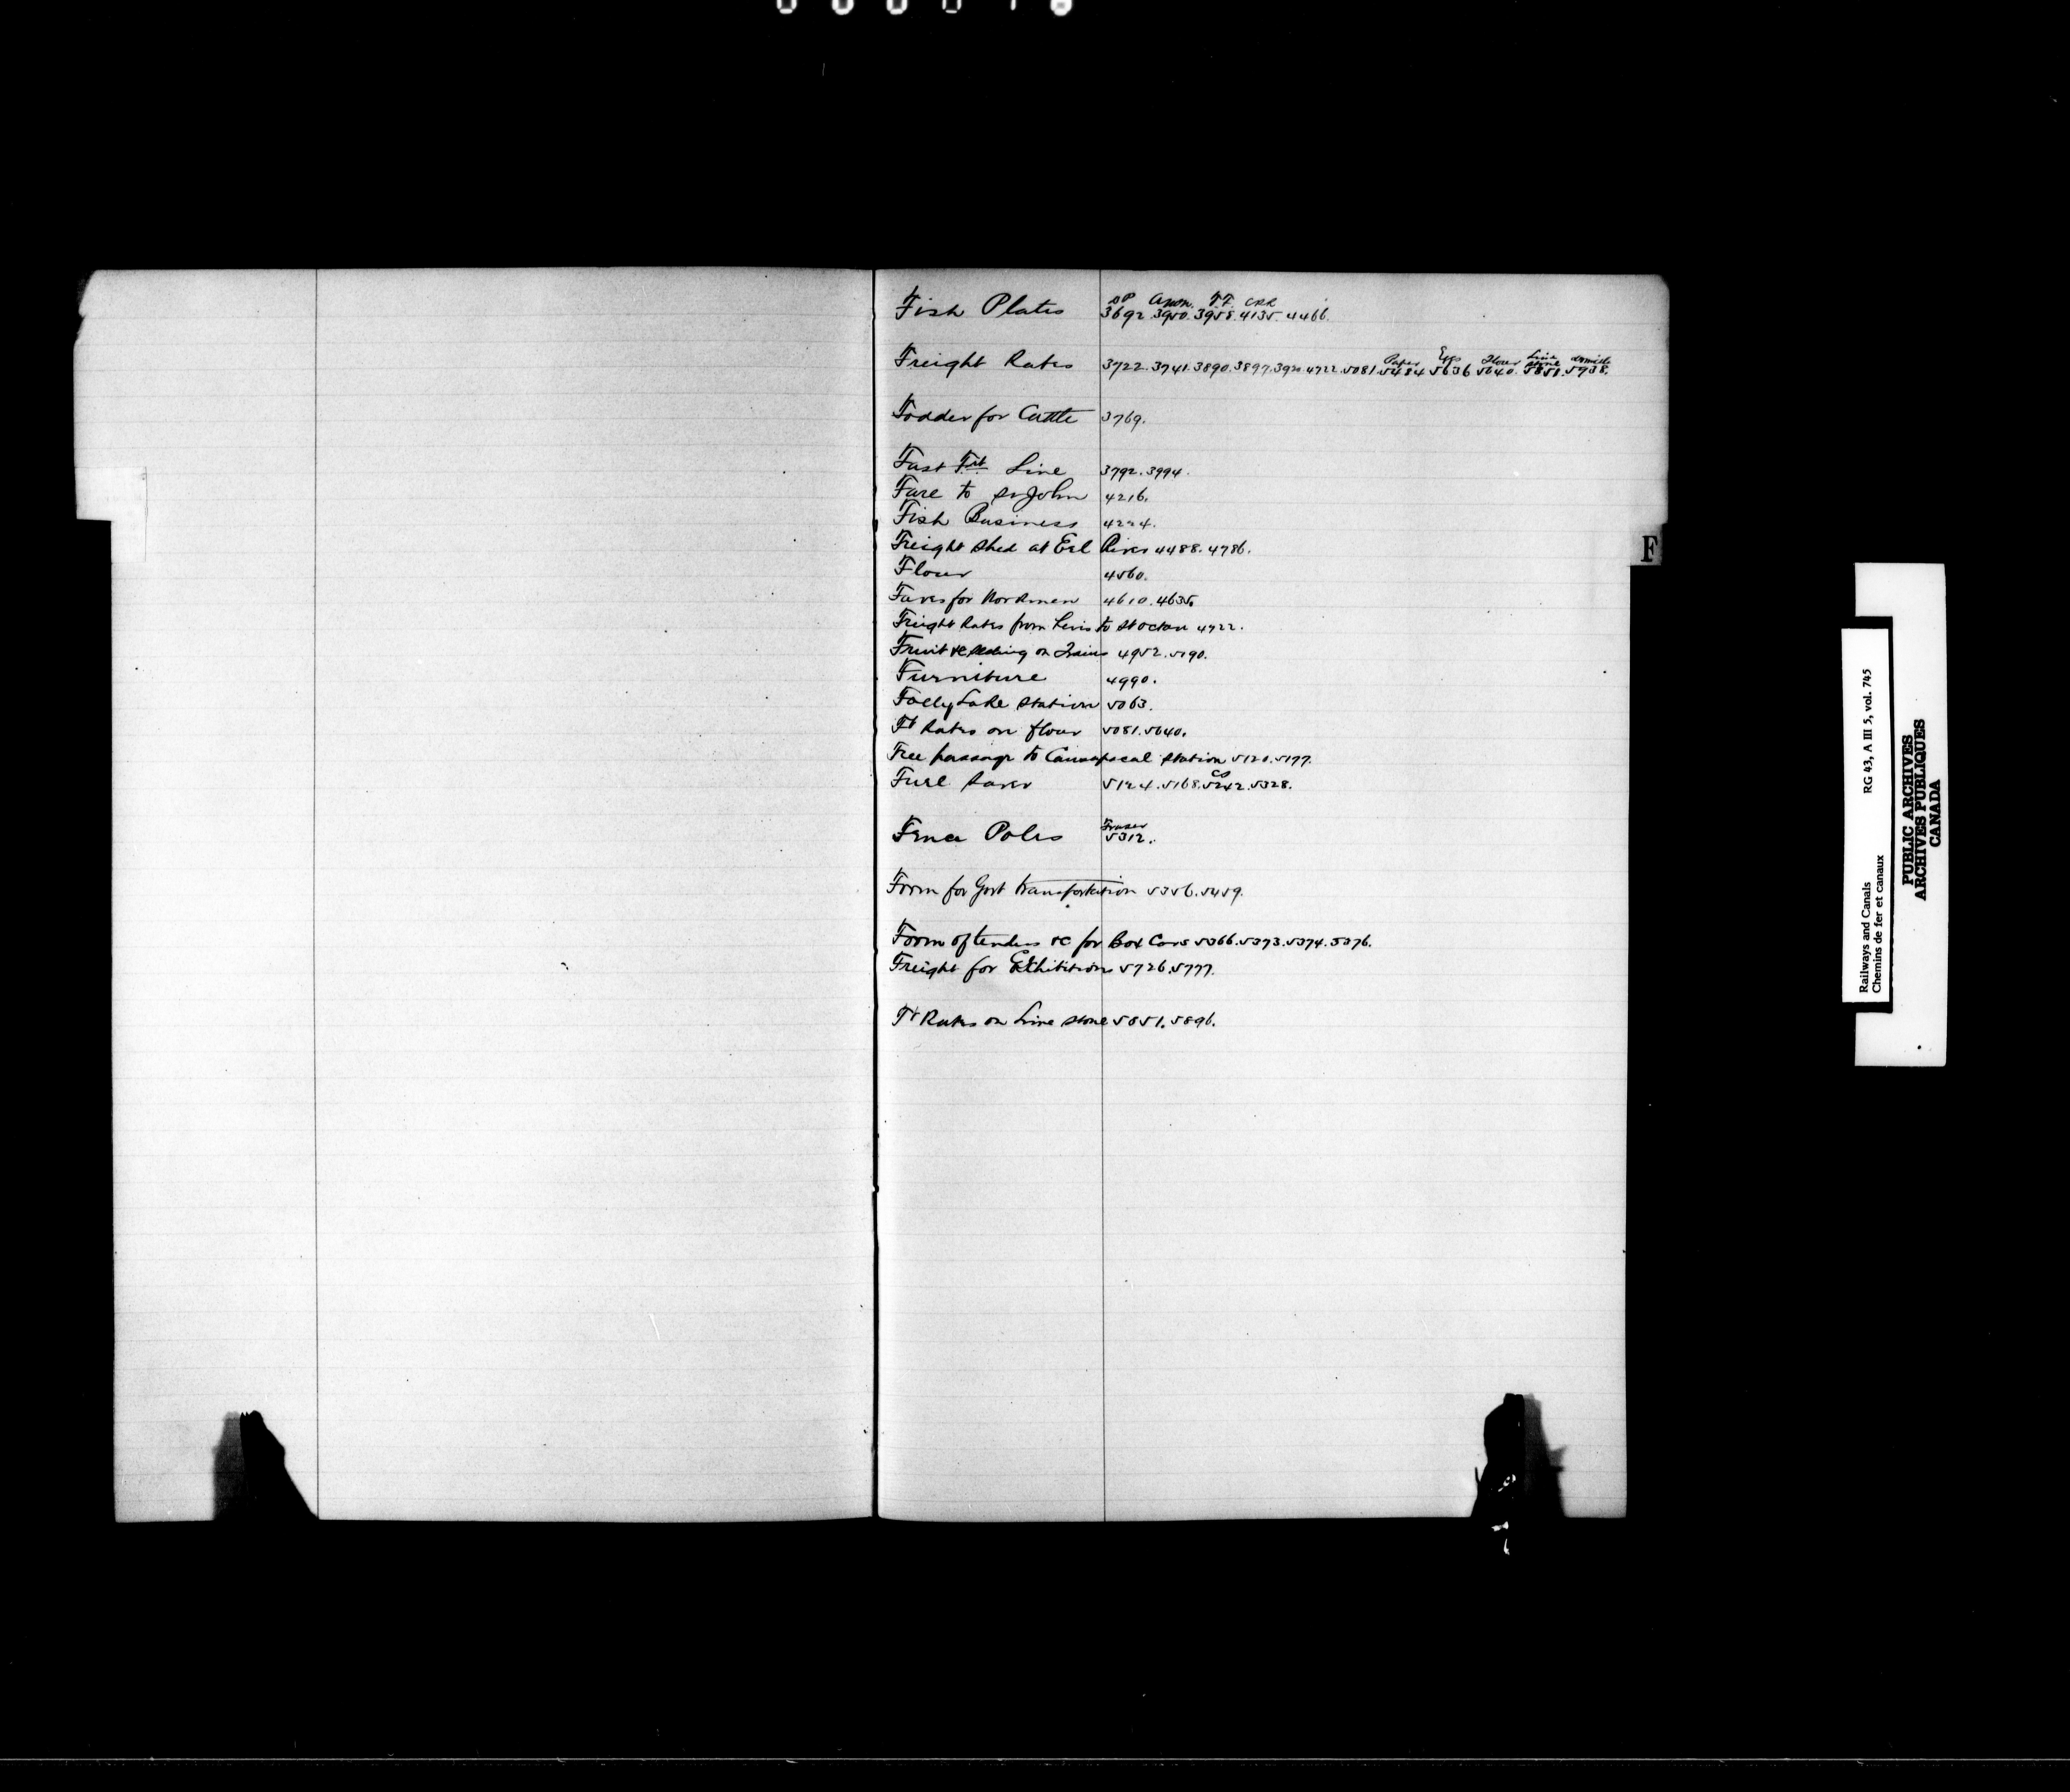 Fish Plates 3692. 3950. 3958. 4135. 4466.
Freight Rates 3722. 3741. 3890. 3897. 4722. 5081. Paper 5484 Eggs 5636 Flour 5640. Lime stone 5851. 5938.
Fodder for Cattle 3769.
Fast Frt Line 3792. 3994.
Fare to St John 4216.
Fish Business 4224.
Freight Shed at Eel River 4488. 4786.
Flour 4560.
Fares for Workmen 4610. 4635.
Freight Rates from Levis to St Octave 4722.
Fruit &c selling on Trains 4952. 5190.
Furniture 4990.
Folly Lake Station 5063.
Ft Rates on flour 5081. 5640.
Free passage to Causapscal Station 5120. 5177.
Fuel Saver 5124. 5168. 5242. 5328.
Fence Poles Fraser 5312.
Form for Govt transportation 5356. 5459.
Form of tenders &c for Box Cars 5366. 5373. 5374. 5376.
Freight for Exhibitions 5726. 5777.
Ft Rates on Lime stone 5851. 5896.
F
RG 43, A III 5, vol. 745
Railways and Canals
Chemins de fer et canaux
PUBLIC ARCHIVES
ARCHIVES PUBLIQUES
CANADA